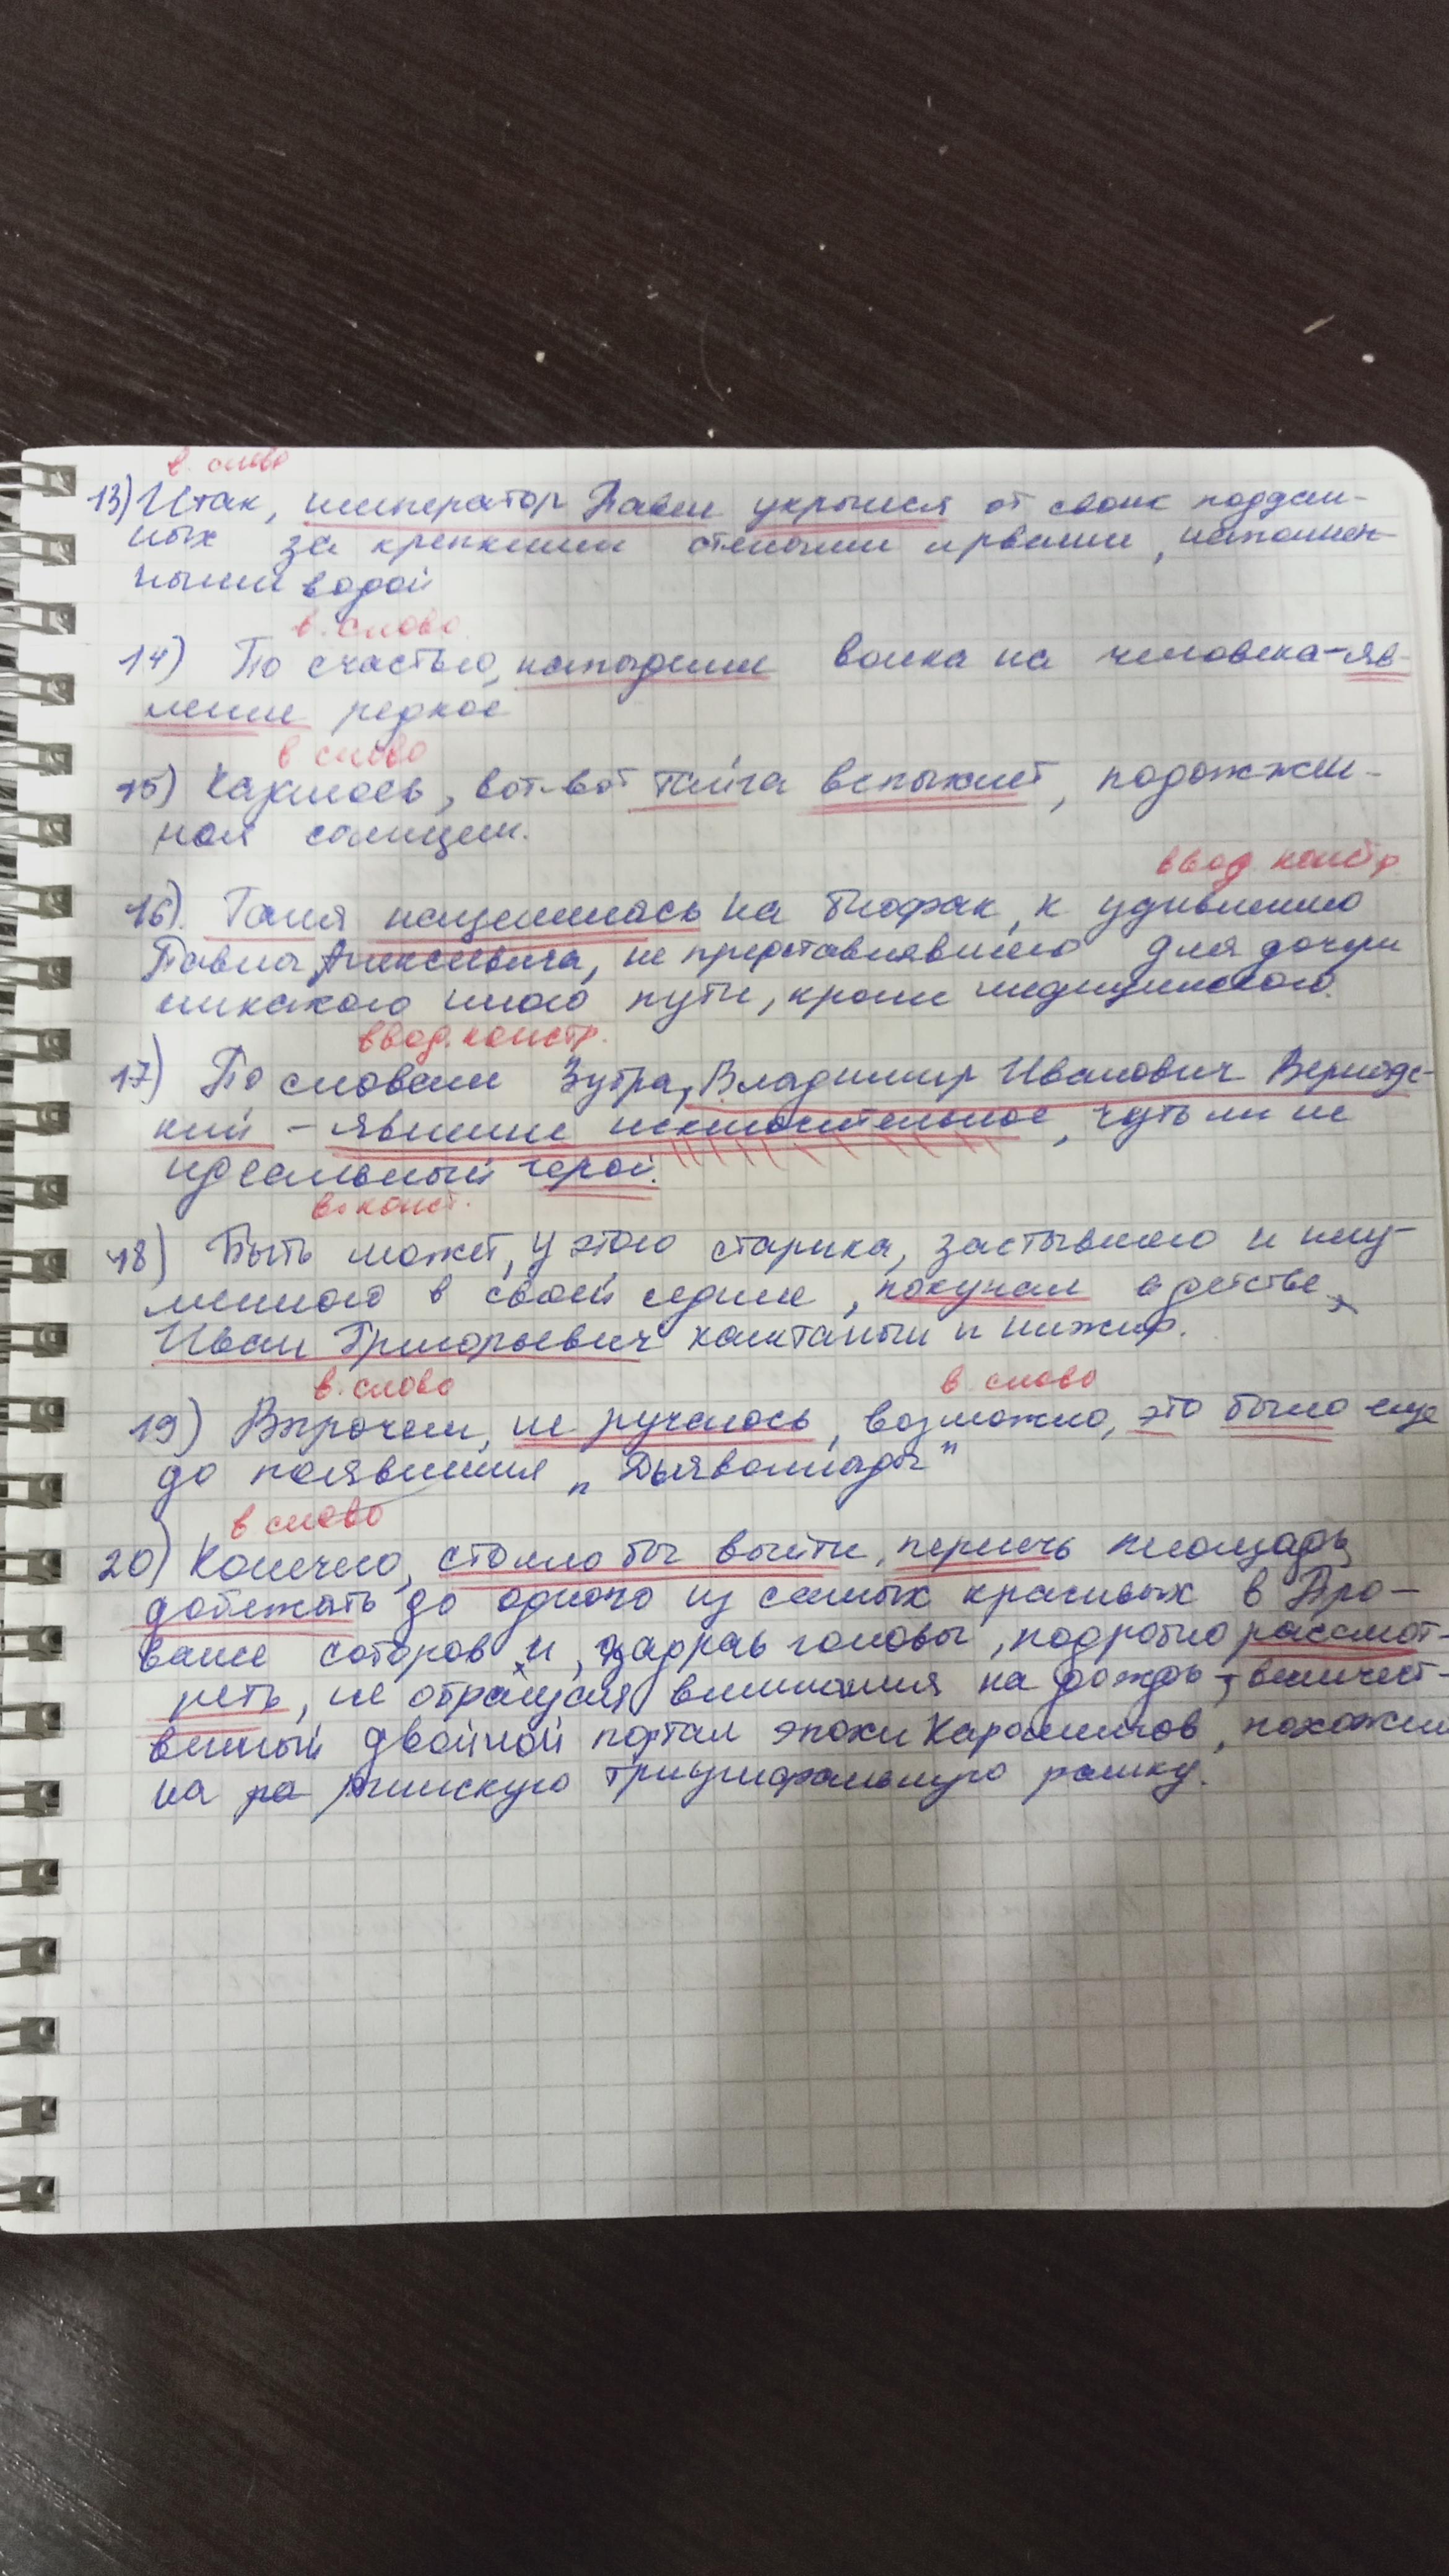 в. слово
13) Итак, император Павел укрылся от своих поддан-
ных за крепкими стенами и рвами, наполнен-
ными водой
в. слово
14) По счастью, нападение волка на человека - яв-
ление редкое
в слово
15) Казалось, вот-вот тайга вспыхнет, подожжен-
ная солнцем.
ввод. констр
16). Таня нацелилась на биофак, к удивлению
Павла Алексеевича, не представлявшего для дочери
никакого иного пути, кроме медицинского.
ввод. констр.
17) По словам Зубра, Владимир Иванович Вернадс-
кий - явление исключительное, чуть ли не
идеальный герой.
в. конст.
18) Быть может, у этого старика, застывшего и
в своей седине, покупал в детстве
Иван Григорьевич каштаны и инжир.
в. слово в. слово
19) Впрочем, не ручаюсь, возможно, это было еще
до появления „Дьяволиады"
в слово
20) Конечно, стоило бы выйти, пересечь площадь,
добежать до одного из самых красивых в Про-
вансе соборов и, задрав головы, подробно рассмот-
реть, не обращая внимания на дождь, величест-
венный двойной портал эпохи Каролингов, похожий
на римскую триумфальную рамку.